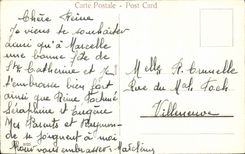 Carte Postale - Post Card
Chère Reine
Je viens te souhaiter
ainsi qu'à Marcelle
une bonne fête de
Ste Catherine et
t'embrasse bien fort
ainsi que Reine
Séraphine et Eugène
Mes Parents et Raymonde
se joignent à moi
Pour vous embrasser
Melle R.
Rue du Mal Foch
Villeneuve